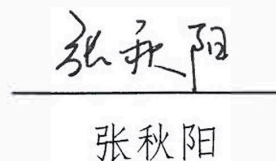 张秋阳
张秋阳